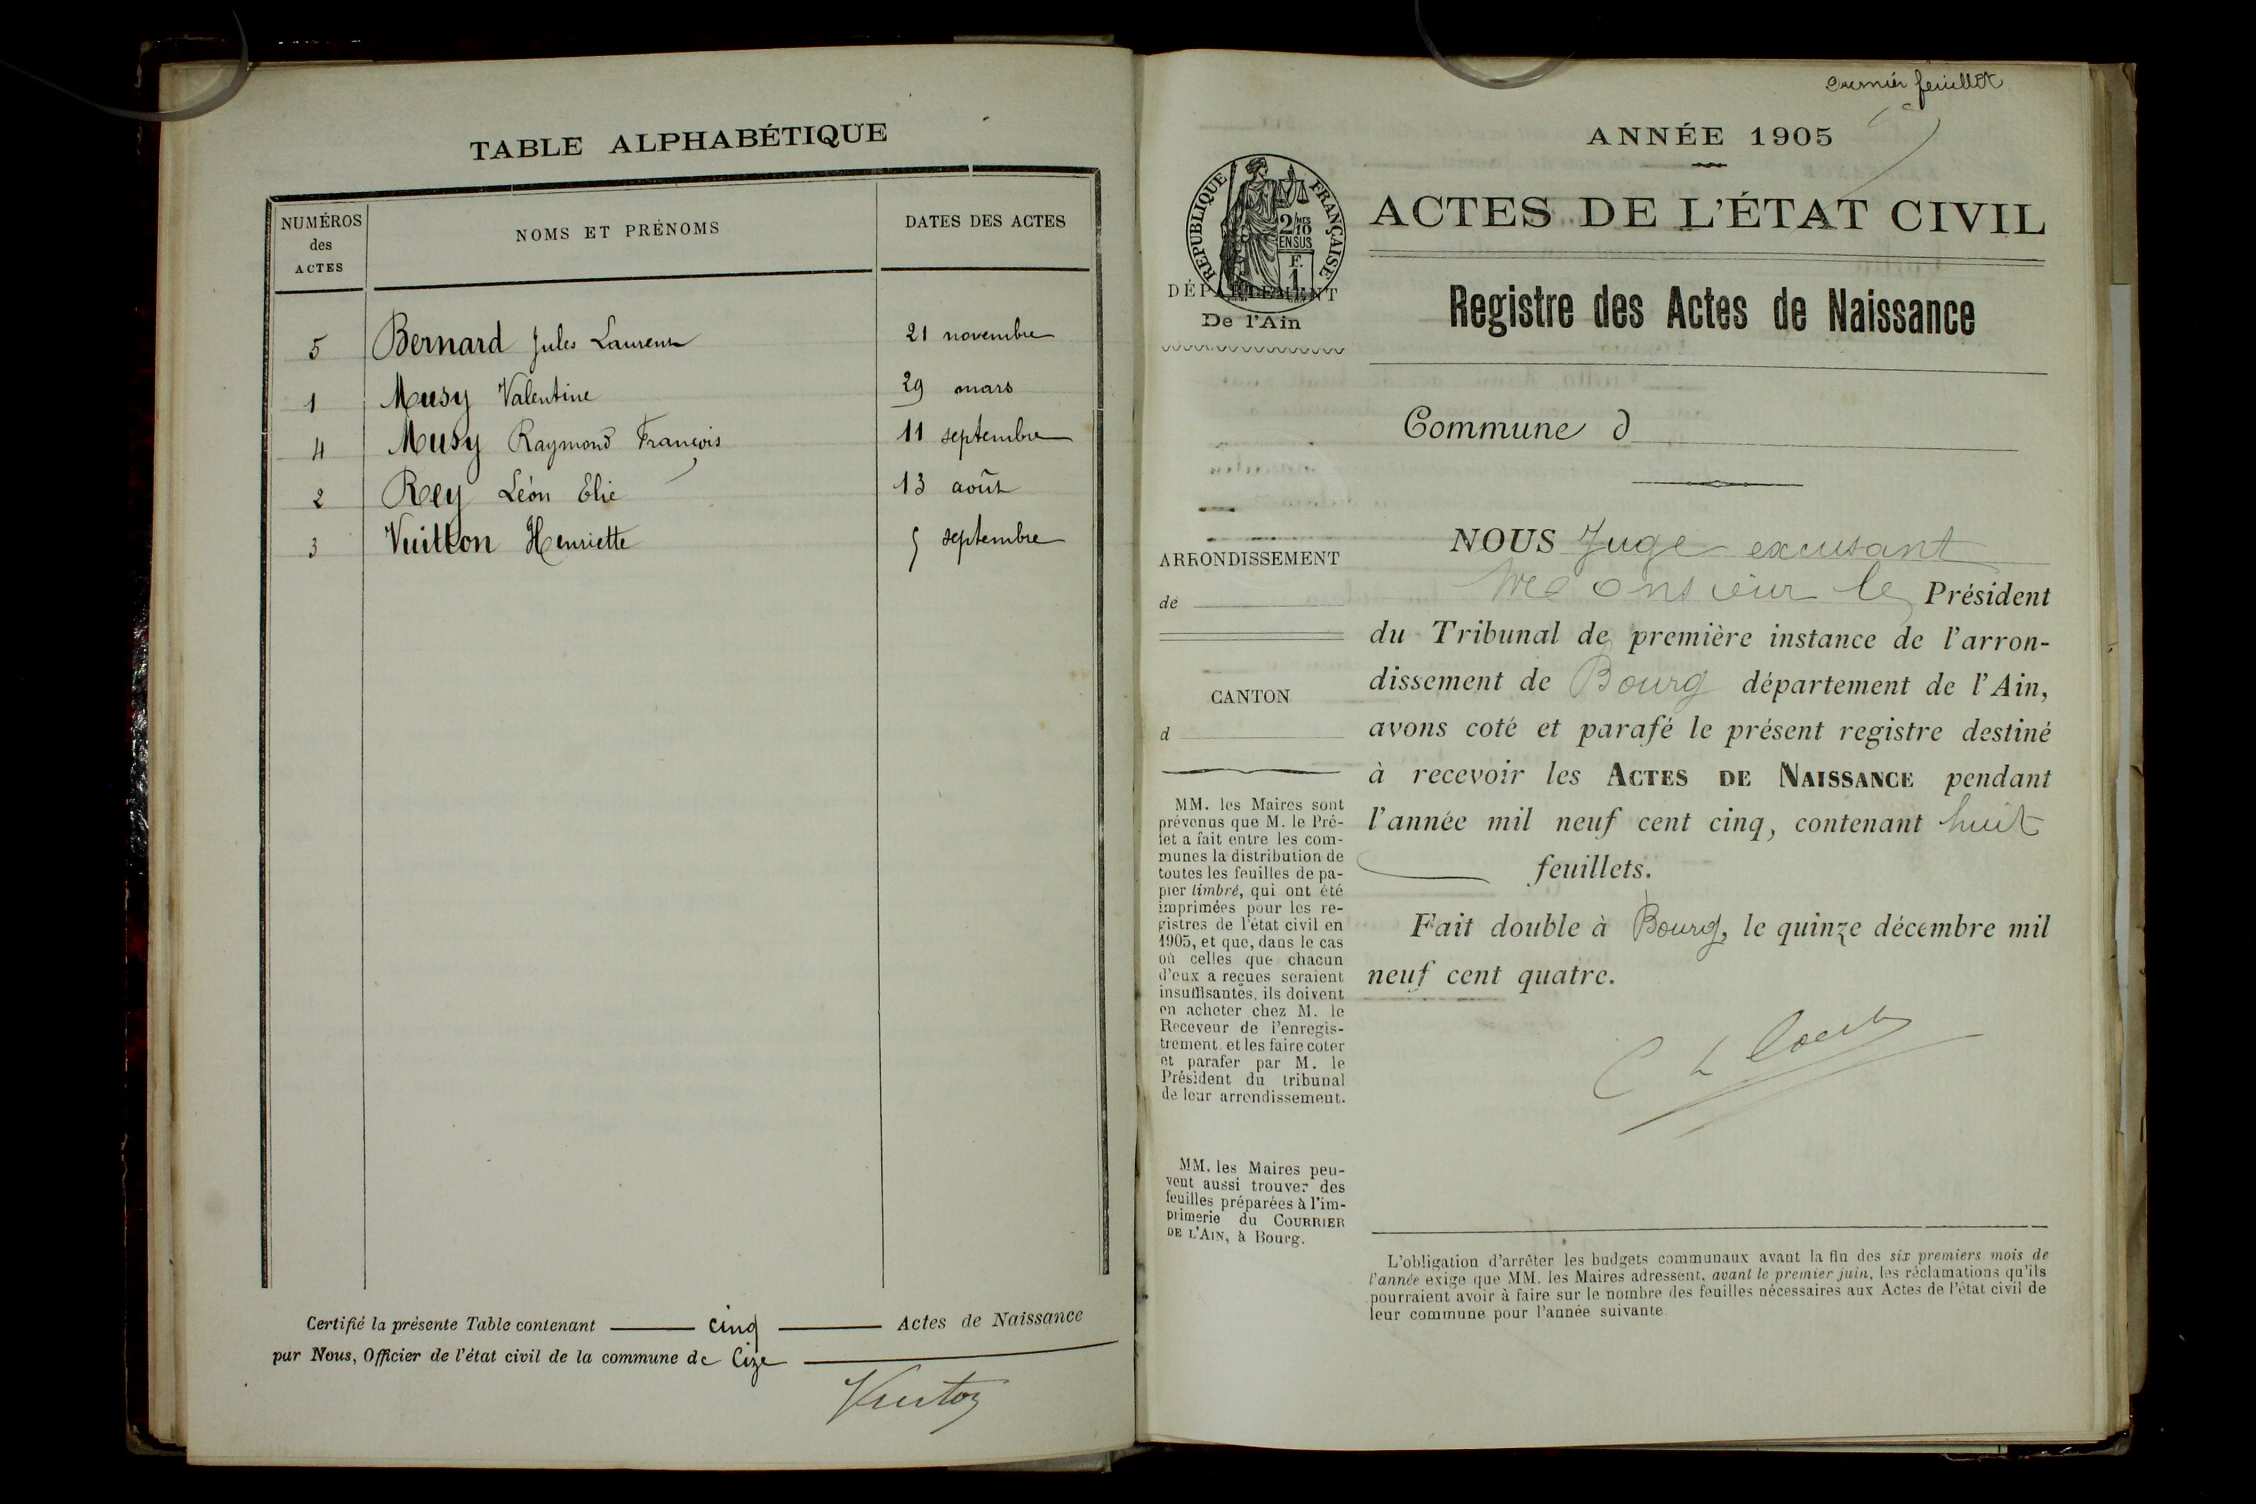 TABLE ALPHABÉTIQUE
NUMÉROS des ACTES
NOMS ET PRÉNOMS
DATES DES ACTES
5 Bernard Jules Laurent 21 novembre
1 Musy Valentine 29 mars
4 Musy Raymond François 11 septembre
2 Rey Léon Elie 13 août
3 Vuitton Henriette 5 septembre
Certifié la présente Table contenant cinq Actes de Naissance
par Nous, Officier de l'état civil de la commune de Cize
feuillet
ANNÉE 1905
ACTES DE L'ÉTAT CIVIL
RÉPUBLIQUE FRANÇAISE
2/10
EN SUS
F.
1
DÉPARTEMENT
De l'Ain
Registre des Actes de Naissance
Commune d
ARRONDISSEMENT
de
CANTON
d
MM. les Maires sont
prévenus que M. le Pré-
fet a fait entre les com-
munes la distribution de
toutes les feuilles de pa-
pier timbré, qui ont été
imprimées pour les re-
gistres de l'état civil en
1905, et que, dans le cas
où celles que chacun
d'eux a reçues seraient
insuffisantes, ils doivent
en acheter chez M. le
Receveur de l'enregis-
trement et les faire coter
et parafer par M. le
Président du tribunal
de leur arrondissement.
MM. les Maires peu-
vent aussi trouver des
feuilles préparées à l'im-
primerie du COURRIER
DE L'AIN, à Bourg.
NOUS Juge excusant
Monsieur le Président
du Tribunal de première instance de l'arron-
dissement de Bourg département de l'Ain,
avons coté et parafé le présent registre destiné
à recevoir les ACTES DE NAISSANCE pendant
l'année mil neuf cent cinq, contenant huit
feuillets.
Fait double à Bourg, le quinze décembre mil
neuf cent quatre.
L'obligation d'arrêter les budgets communaux avant la fin des six premiers mois de
l'année exige que MM. les Maires adressent, avant le premier juin, les réclamations qu'ils
pourraient avoir à faire sur le nombre des feuilles nécessaires aux Actes de l'état civil de
leur commune pour l'année suivante